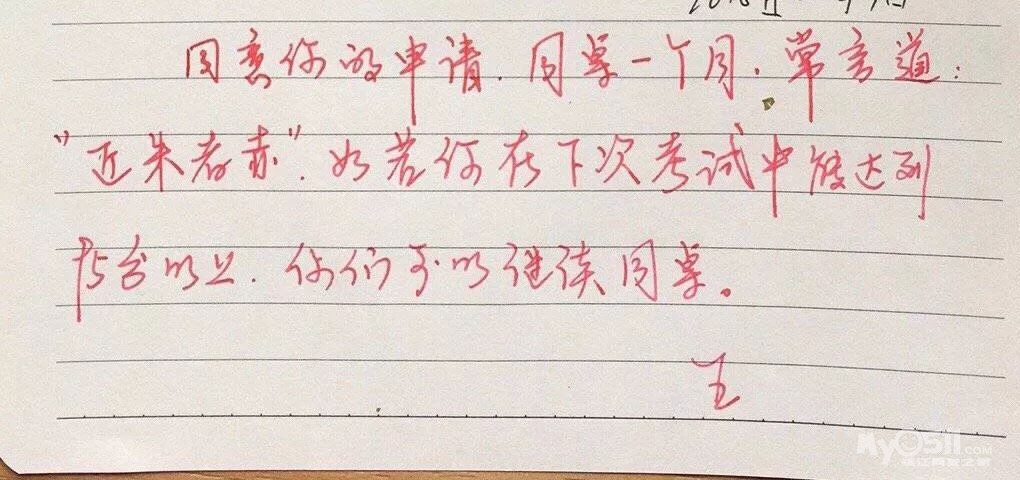 同意你的申请.同桌一个月.常言道:
"近朱者赤".如若你在下次考试中能达到
95分以上.你们可以继续同桌。
王